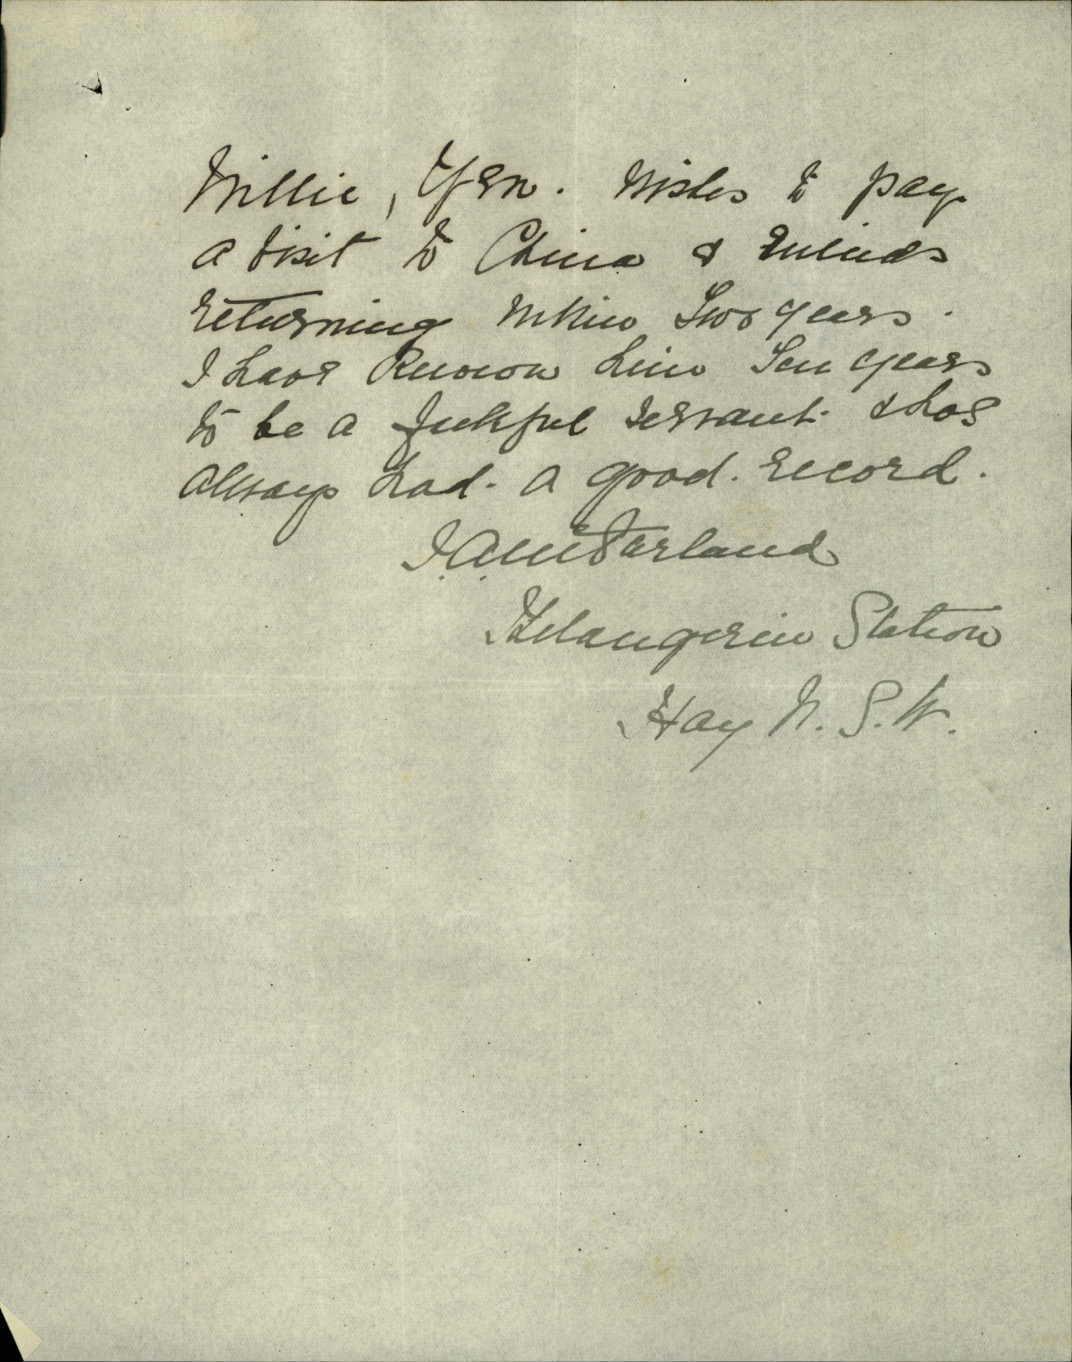 Willie, Yen. wishes to pay
a visit to China & intends
returning within Two years.
I have known him Ten years
to be a faithful servant & has
always had. a good. record.
J. A. McFarland
Thelangerin Station
Hay N. S. W.